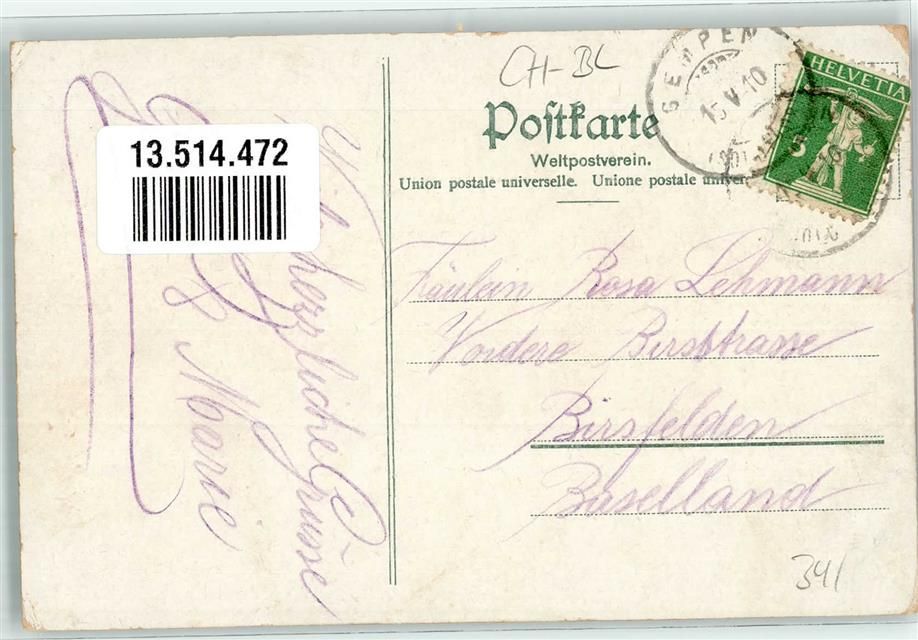 CH-BL
Postkarte
Weltpostverein.
Union postale universelle. Unione postale univer
HELVETIA
5
15.V.10
13.514.472
Viele herzliche Grüsse
Fräulein Rosa Lehmann
Vordere Birsstrasse
Birsfelden
Baselland
341